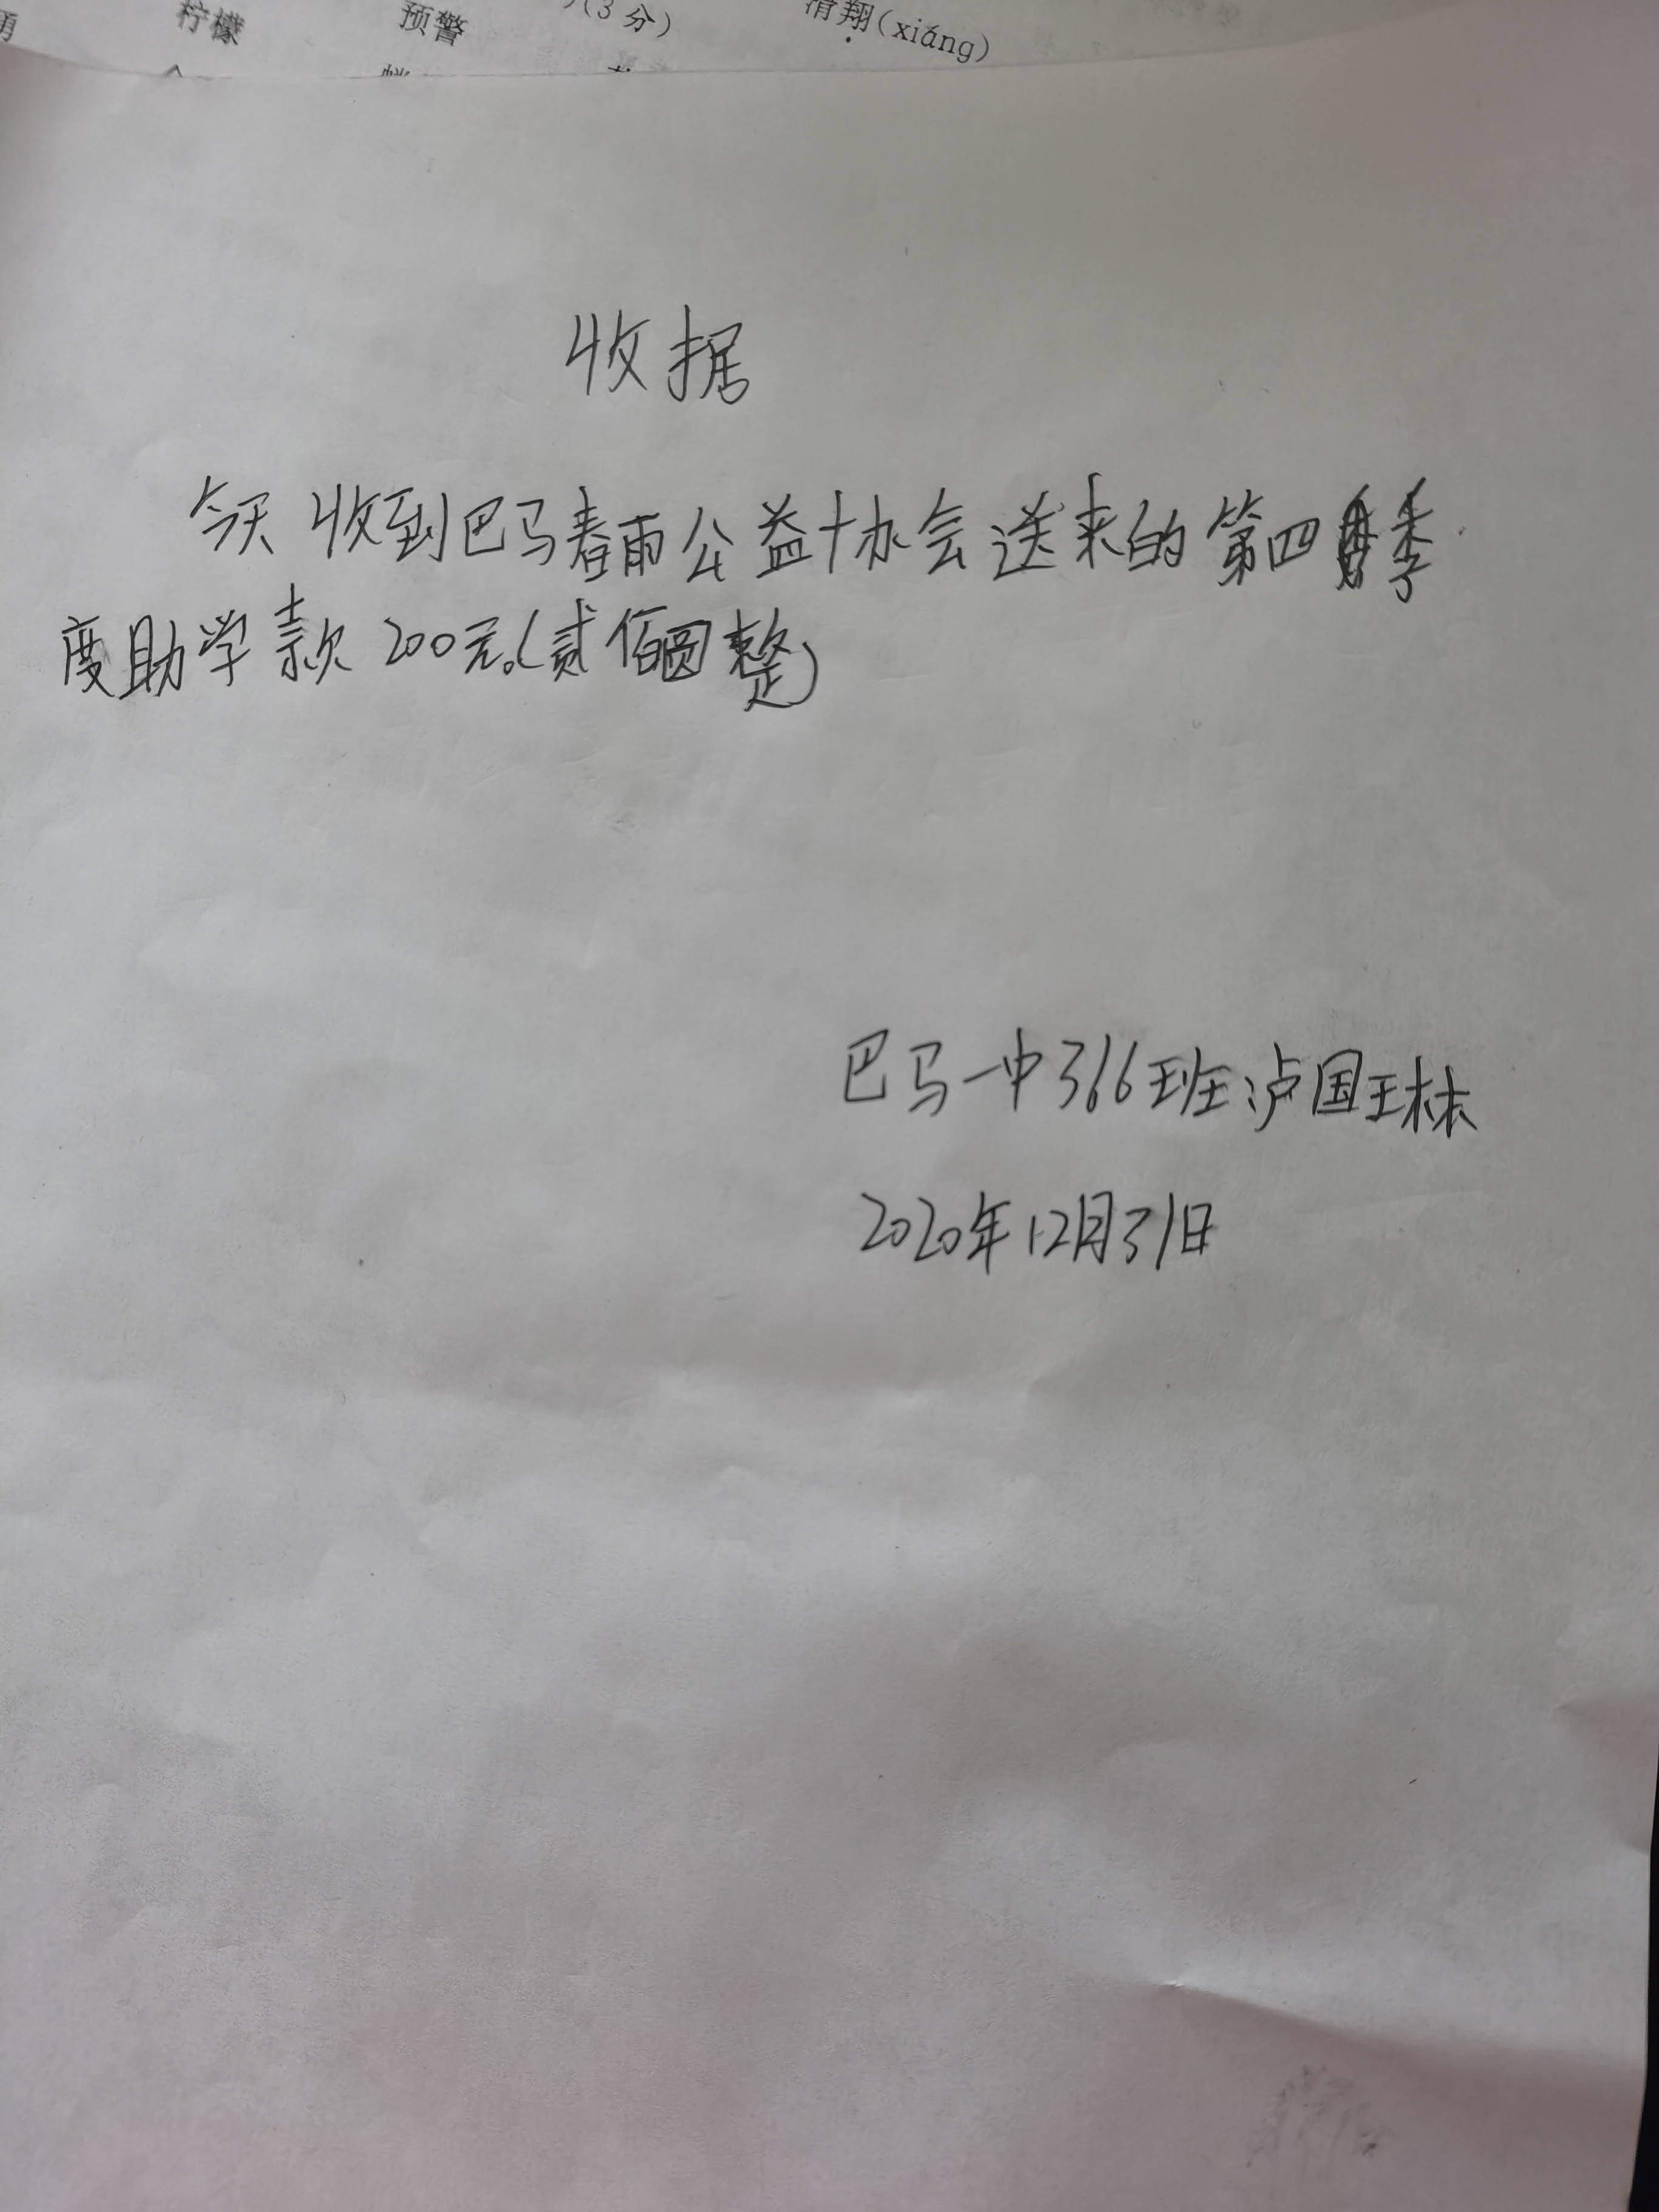 柠檬 预警 (3分) 滑翔(xiáng)
收据
今天收到巴马春雨公益协会送来的第四季
度助学款200元。(贰佰圆整)
巴马一中366班泸国琳
2020年12月31日